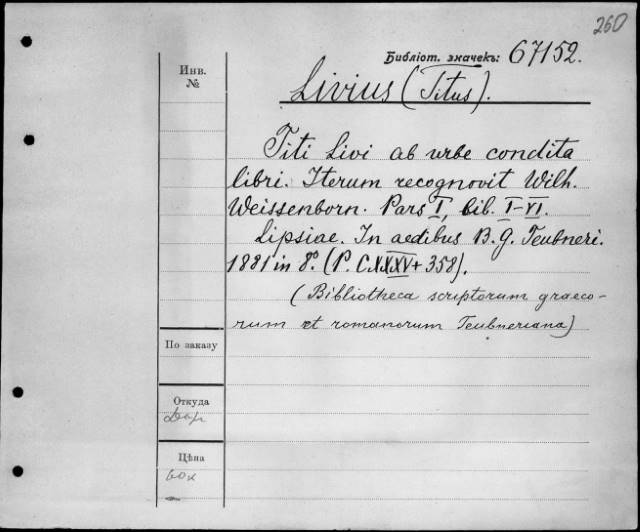 260
Библіот. значекъ: 67152.
Инв.
№
Livius (Titus).
Titi Livi ab urbe condita
libri. Iterum recognovit Wilh.
Weissenborn. Pars I, lib. I-VI.
Lipsiae. In aedibus B. G. Teubneri.
1881 in 8°. (P. CXXXV + 358).
(Bibliotheca scriptorum graeco-
rum et romanorum Teubneriana)
По заказу
Откуда
Дар
Цѣна
60к